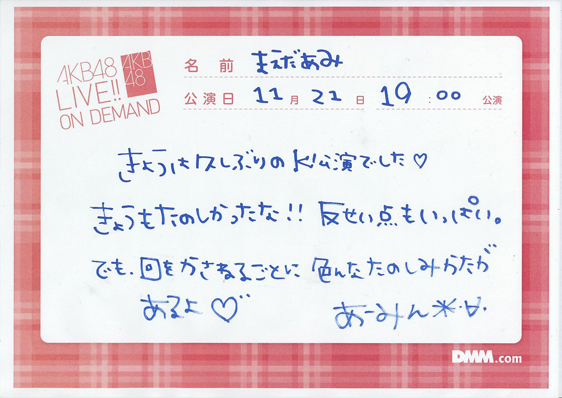 AKB48
LIVE!!
ON DEMAND
AKB
48
名前 まえだあみ
公演日 11月21日 19:00 公演
きょうは久しぶりのK公演でした♡
きょうもたのしかったな!! 反せい点もいっぱい。
でも、回をかさねるごとに色んなたのしみかたが
あるよ♡ あーみん＊・∀・
DMM.com